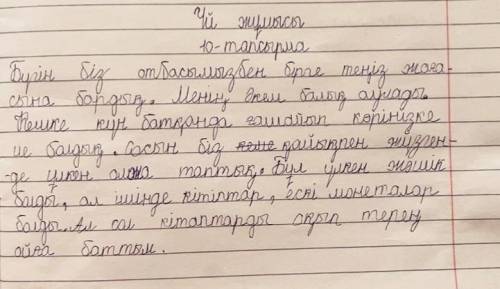 Үй жұмысы
10-тапсырма
Бүгін біз отбасымызбен бірге теңіз жаға-
сына бардық. Менің әкем балық аулады.
Кешке күн батқанда ғажайып көрініске
ие болдық. Сосын біз қайықпен жүзген-
де үлкен олжа таптық. Бұл үлкен жәшік
болды, ал ішінде кітаптар, ескі монеталар
болды. Ал сол кітаптарды оқып терең
ойға баттым.